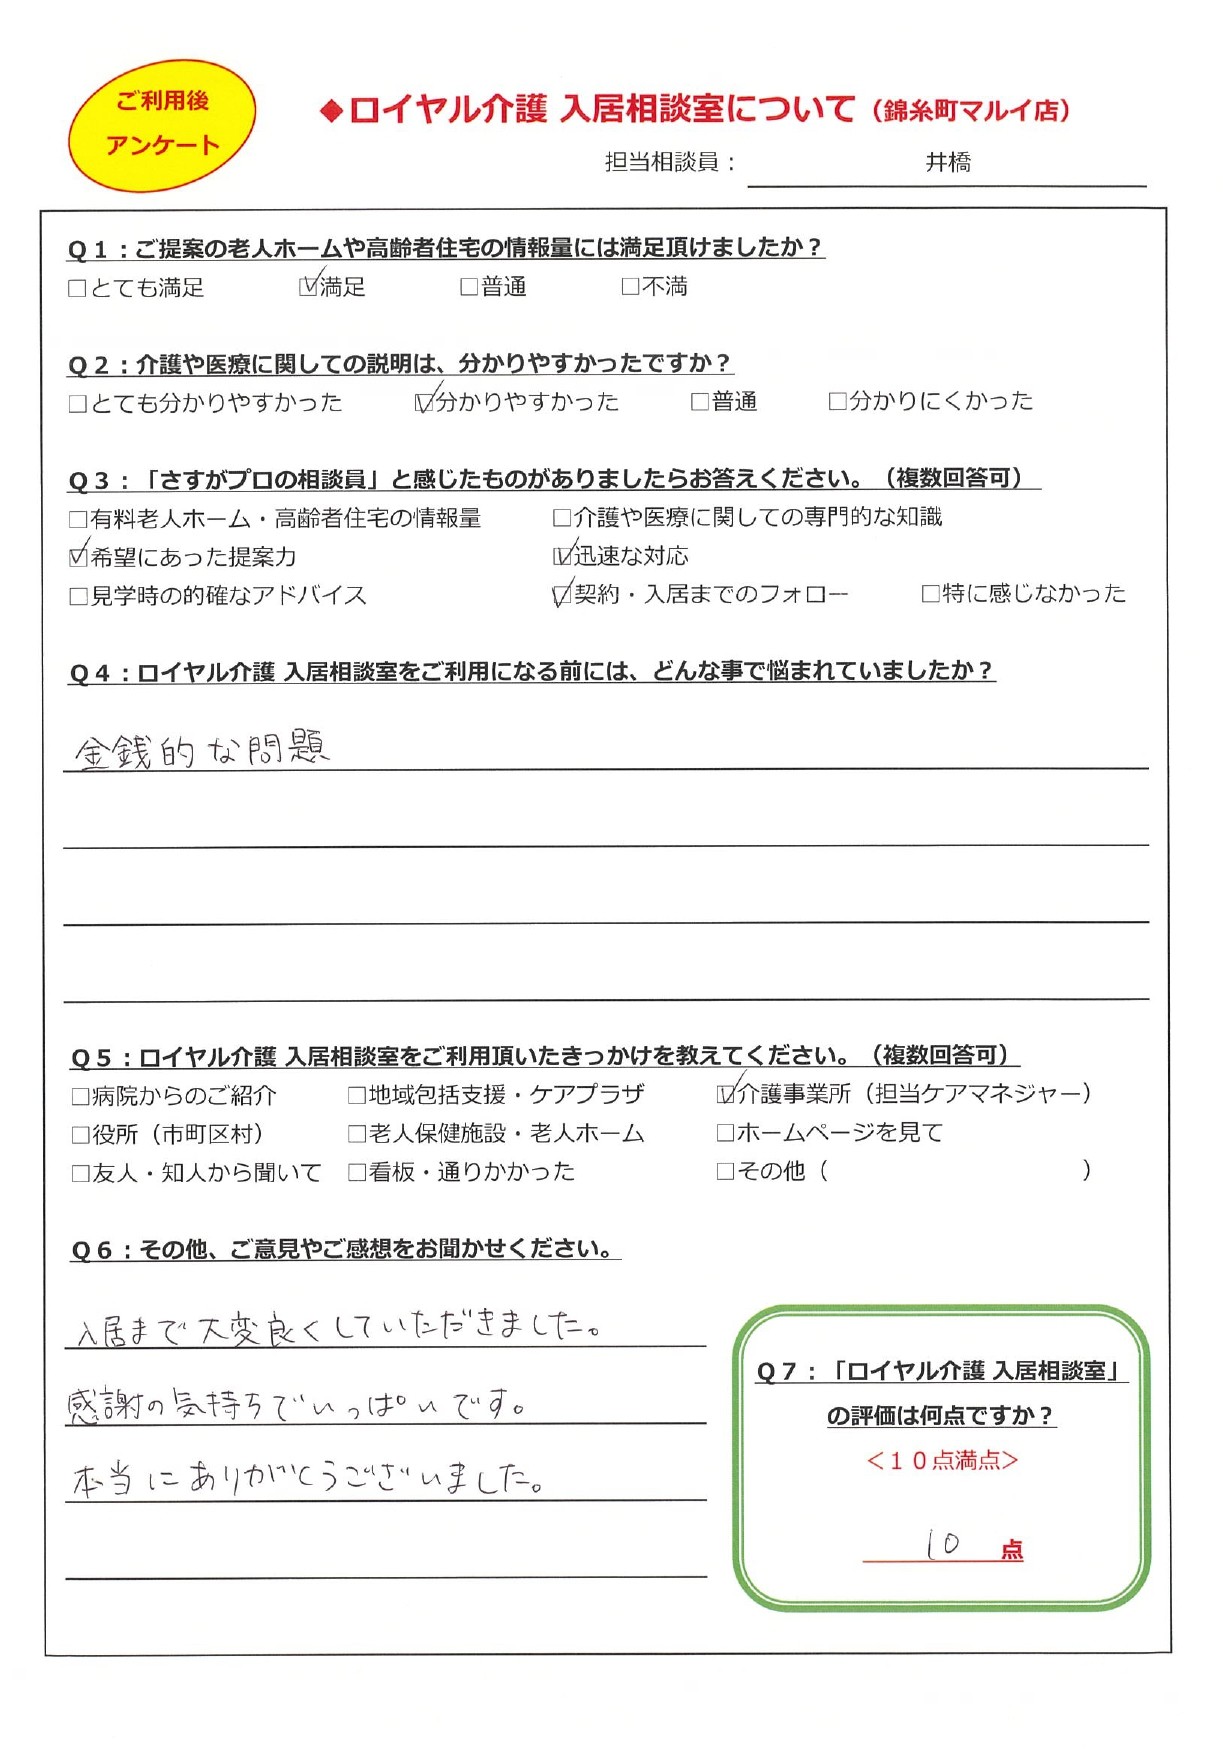 ご利用後
アンケート
◆ロイヤル介護 入居相談室について（錦糸町マルイ店）
担当相談員： 井橋
Ｑ１：ご提案の老人ホームや高齢者住宅の情報量には満足頂けましたか？
□とても満足 ☑満足 □普通 □不満
Ｑ２：介護や医療に関しての説明は、分かりやすかったですか？
□とても分かりやすかった ☑分かりやすかった □普通 □分かりにくかった
Ｑ３：「さすがプロの相談員」と感じたものがありましたらお答えください。（複数回答可）
□有料老人ホーム・高齢者住宅の情報量 □介護や医療に関しての専門的な知識
☑希望にあった提案力 ☑迅速な対応
□見学時の的確なアドバイス ☑契約・入居までのフォロー □特に感じなかった
Ｑ４：ロイヤル介護 入居相談室をご利用になる前には、どんな事で悩まれていましたか？
金銭的な問題
Ｑ５：ロイヤル介護 入居相談室をご利用頂いたきっかけを教えてください。（複数回答可）
□病院からのご紹介 □地域包括支援・ケアプラザ ☑介護事業所（担当ケアマネジャー）
□役所（市町区村） □老人保健施設・老人ホーム □ホームページを見て
□友人・知人から聞いて □看板・通りかかった □その他（ ）
Ｑ６：その他、ご意見やご感想をお聞かせください。
入居まで大変良くしていただきました。
感謝の気持ちでいっぱいです。
本当にありがとうございました。
Ｑ７：「ロイヤル介護 入居相談室」
の評価は何点ですか？
＜１０点満点＞
10 点